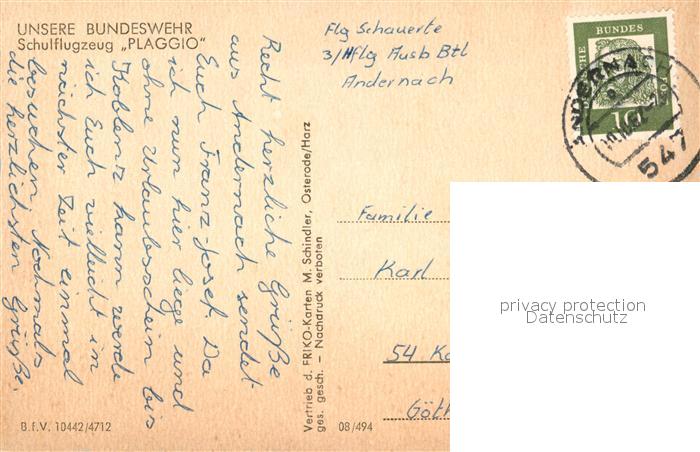 UNSERE BUNDESWEHR
Schulflugzeug „PLAGGIO"
Recht herzliche Grüße
aus Andernach sendet
Euch Franz-Josef. Da
ich nun hier liege und
ohne Urlaubsschein bis
Koblenz kann werde
ich Euch vielleicht in
nächster Zeit einmal
besuchen. Nochmals
die herzlichsten Grüße.
B.f.V. 10442/4712
Vertrieb d. FRIKO-Karten M. Schindler, Osterode/Harz
ges. gesch. — Nachdruck verboten
08/494
Flg Schauerte
3/ Aflg Ausb Btl
Andernach
DEUTSCHE BUNDES POST
10
ANDERNACH
547
Familie
Karl
54 Ko
Göth
privacy protection
Datenschutz